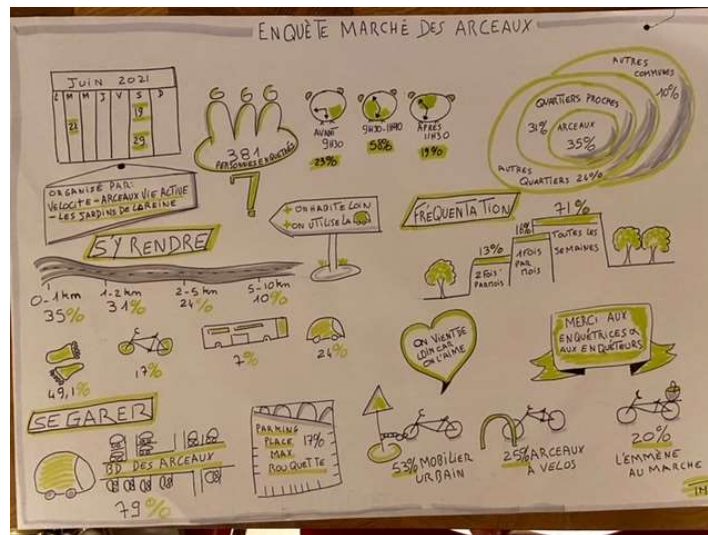 ENQUÊTE MARCHÉ DES ARCEAUX
JUIN 2021
L M M J V S D
19
22
29
ORGANISÉ PAR:
VELOCITE - ARCEAUX VIE ACTIVE
- LES JARDINS DE LA REINE
381
PERSONNES ENQUÊTÉES
?
AVANT
9H30
23%
9H30-11H30
58%
APRÈS
11H30
19%
AUTRES
COMMUNES
10%
QUARTIERS PROCHES
31%
ARCEAUX
35%
AUTRES
QUARTIERS 24%
+ ON HABITE LOIN
+ ON UTILISE LA
S'Y RENDRE
0-1km
35%
1-2 km
31%
2-5 km
24%
5-10km
10%
49,1%
17%
7%
24%
FRÉQUENTATION
13%
2 FOIS
PAR MOIS
16%
1 FOIS
PAR
MOIS
71%
TOUTES LES
SEMAINES
ON VIENT DE
LOIN CAR
ON L'AIME
MERCI AUX
ENQUÊTRICES &
AUX ENQUÊTEURS
SE GARER
BD DES ARCEAUX
79%
PARKING
PLACE 17%
MAX
ROUQUETTE
53% MOBILIER
URBAIN
25% ARCEAUX
À VELOS
20%
L'EMMÈNE
AU MARCHE